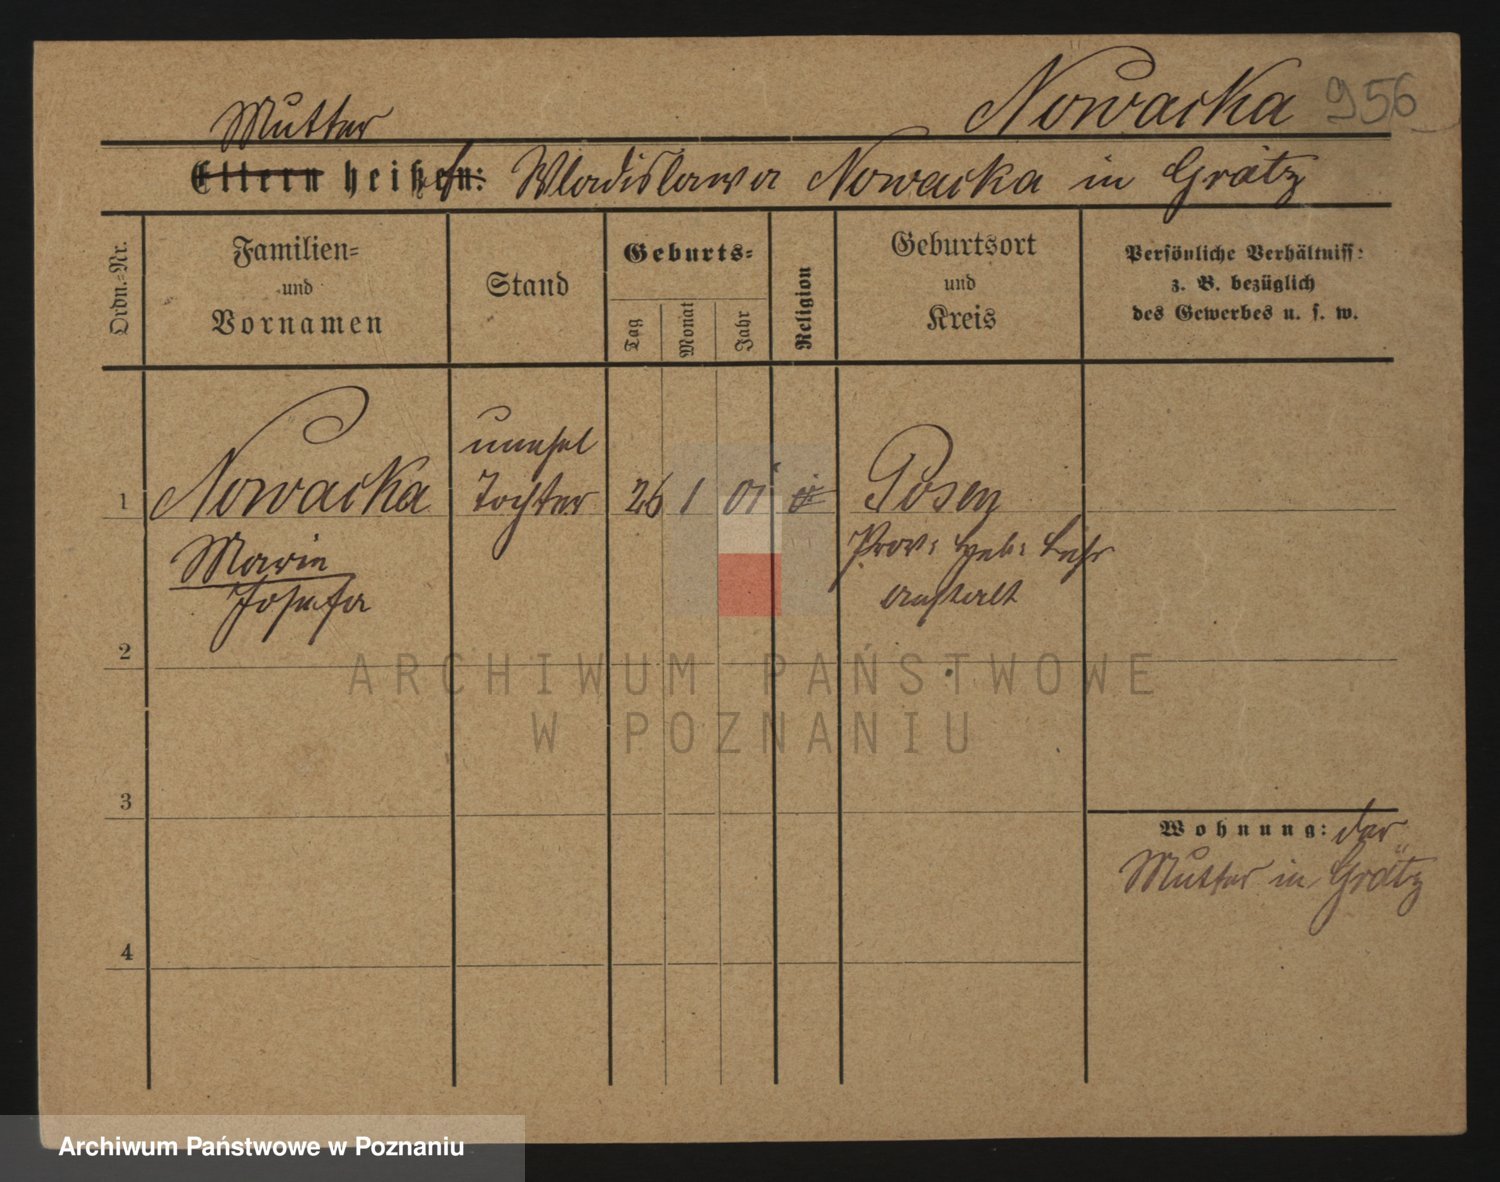 Nowacka 956
Mutter
Eltern heißen: Wladislawa Nowacka in Grätz
Ordn.-Nr.
Familien-
und
Vornamen
Stand
Geburts-
Tag
Monat
Jahr
Religion
Geburtsort
und
Kreis
Persönliche Verhältniss:
z. B. bezüglich
des Gewerbes u. s. w.
1
Nowacka
Marie
Josefa
unehel
Tochter
26 1 01
Posen
Prov: Heb: Lehr
anstalt
2
ARCHIWUM PAŃSTWOWE
W POZNANIU
3
Wohnung: der
Mutter in Grätz
4
Archiwum Państwowe w Poznaniu